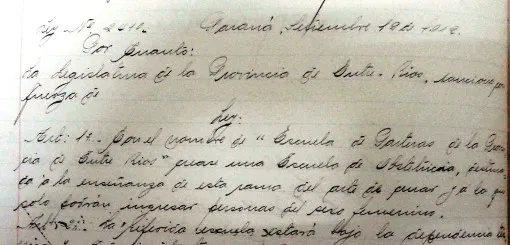 Ley Nº 2410. Paraná, Setiembre 19 de 1912.
Por Cuanto:
La Legislatura de la Provincia de Entre-Rios, sanciona con
fuerza de
Ley:
Art: 1º. Con el nombre de "Escuela de Parteras de la Provin
cia de Entre Rios" créase una Escuela de Obstetricia, destina
da á la enseñanza de esta rama del arte de curar, y a la que
solo podrán ingresar personas del sexo femenino.
La referida escuela estará bajo la dependencia